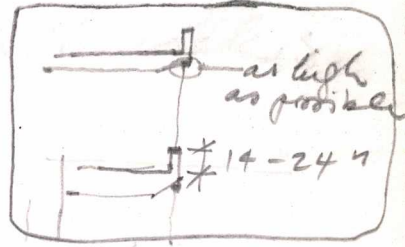 as high
as possible
14-24"